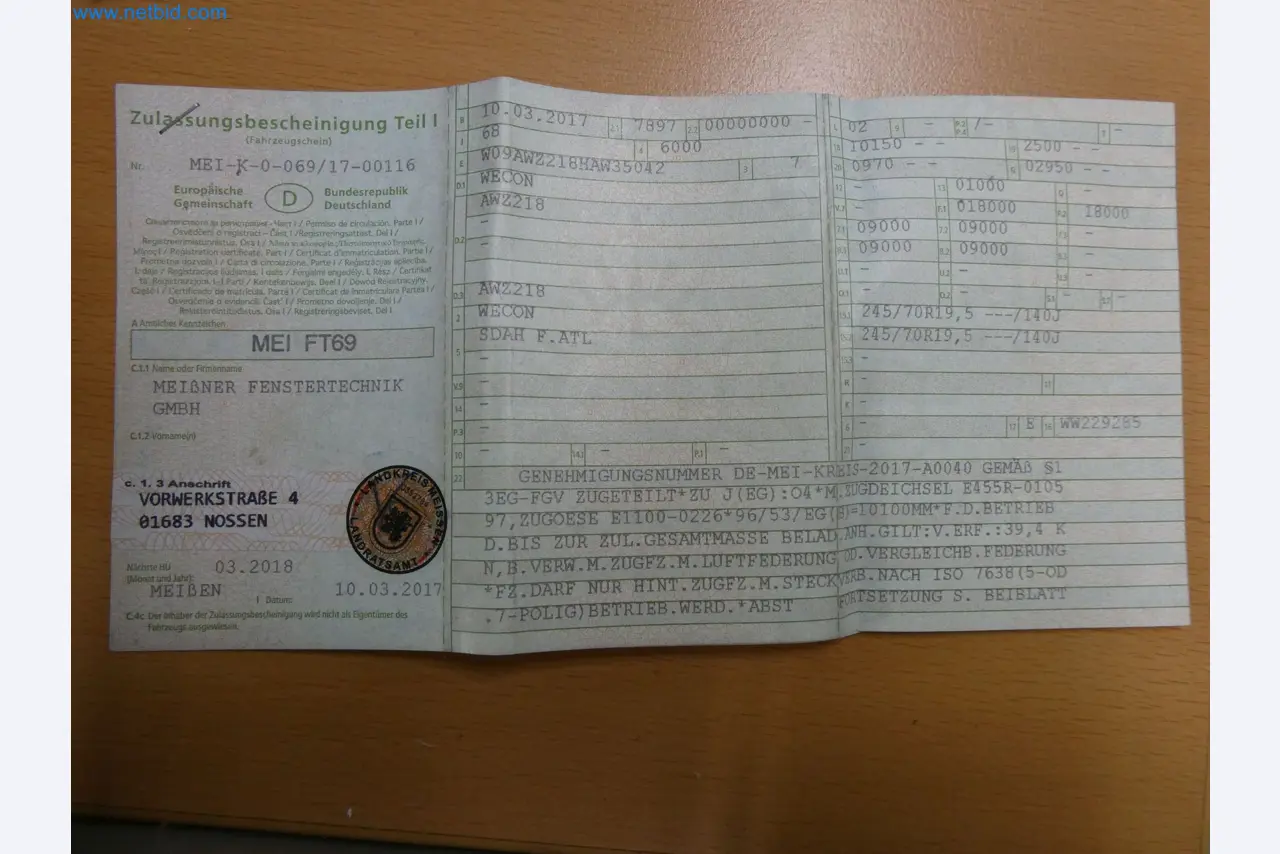 www.netbid.com
Zulassungsbescheinigung Teil I
(Fahrzeugschein)
Nr. MEI-K-0-069/17-00116
Europäische Gemeinschaft D Bundesrepublik Deutschland
A Amtliches Kennzeichen
MEI FT69
C.1.1 Name oder Firmenname
MEIßNER FENSTERTECHNIK
GMBH
C.1.2 Vorname(n)
c. 1. 3 Anschrift
VORWERKSTRAßE 4
01683 NOSSEN
LANDKREIS MEISSEN
LANDRATSAMT
Nächste HU
(Monat und Jahr) 03.2018
MEIßEN 10.03.2017
Datum:
C.4c Der Inhaber der Zulassungsbescheinigung wird nicht als Eigentümer des
Fahrzeugs ausgewiesen.
B 10.03.2017 2.1 7897 2.2 00000000 -
J 68 4 6000
E W09AWZ218HAW35042 3 7
D.1 WECON
AWZ218
-
D.2 -
D.3 AWZ218
2 WECON
5 SDAH F.ATL
-
V.9 -
14 -
P.3 -
10 - 14.1 - P.1 -
L 02 9 - P.2 P.4 /- T -
18 10150 - - 19 2500 - -
20 0970 - - G 02950 - -
12 - 13 01000 Q -
V.7 - F.1 018000 F.2 18000
7.1 09000 7.2 09000 7.3 -
8.1 09000 8.2 09000 8.3 -
U.1 - U.2 - U.3 -
O.1 - O.2 - S.1 - S.2 -
15.1 245/70R19,5 ---/140J
15.2 245/70R19,5 ---/140J
15.3 -
R - 11
K -
6 - 17 E 16 WW229285
21 -
22 GENEHMIGUNGSNUMMER DE-MEI-KREIS-2017-A0040 GEMÄß §1
3EG-FGV ZUGETEILT*ZU J(EG):O4*M.ZUGDEICHSEL E455R-0105
97,ZUGOESE E1100-0226*96/53/EG(B)=10100MM*F.D.BETRIEB
D.BIS ZUR ZUL.GESAMTMASSE BELAD.ANH.GILT:V.ERF.:39,4 K
N,B.VERW.M.ZUGFZ.M.LUFTFEDERUNG OD.VERGLEICHB.FEDERUNG
*FZ.DARF NUR HINT.ZUGFZ.M.STECKVERB.NACH ISO 7638(5-OD
.7-POLIG)BETRIEB.WERD.*ABST FORTSETZUNG S. BEIBLATT